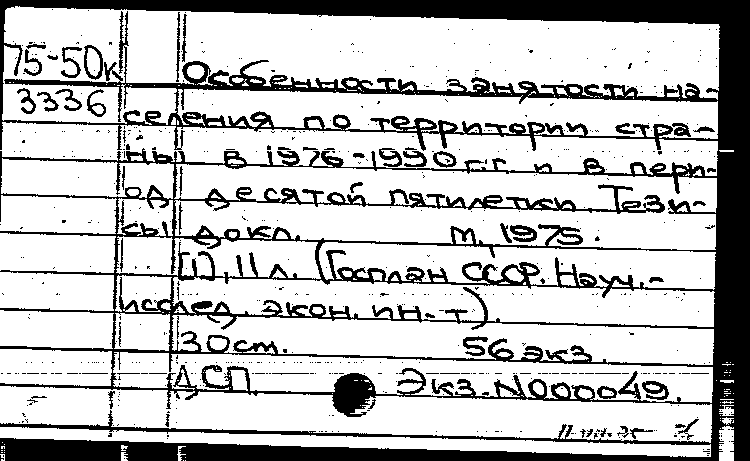 75-50к Особенности занятости на-
3336 селения по территории стра-
ны в 1976-1990 г.г. и в пери-
од десятой пятилетки. Тези-
сы докл. М., 1975.
[1], 11 л. (Госплан СССР. Науч.-
исслед. экон. ин-т).
30 см. 56 экз.
ДСП Экз. № 000049.